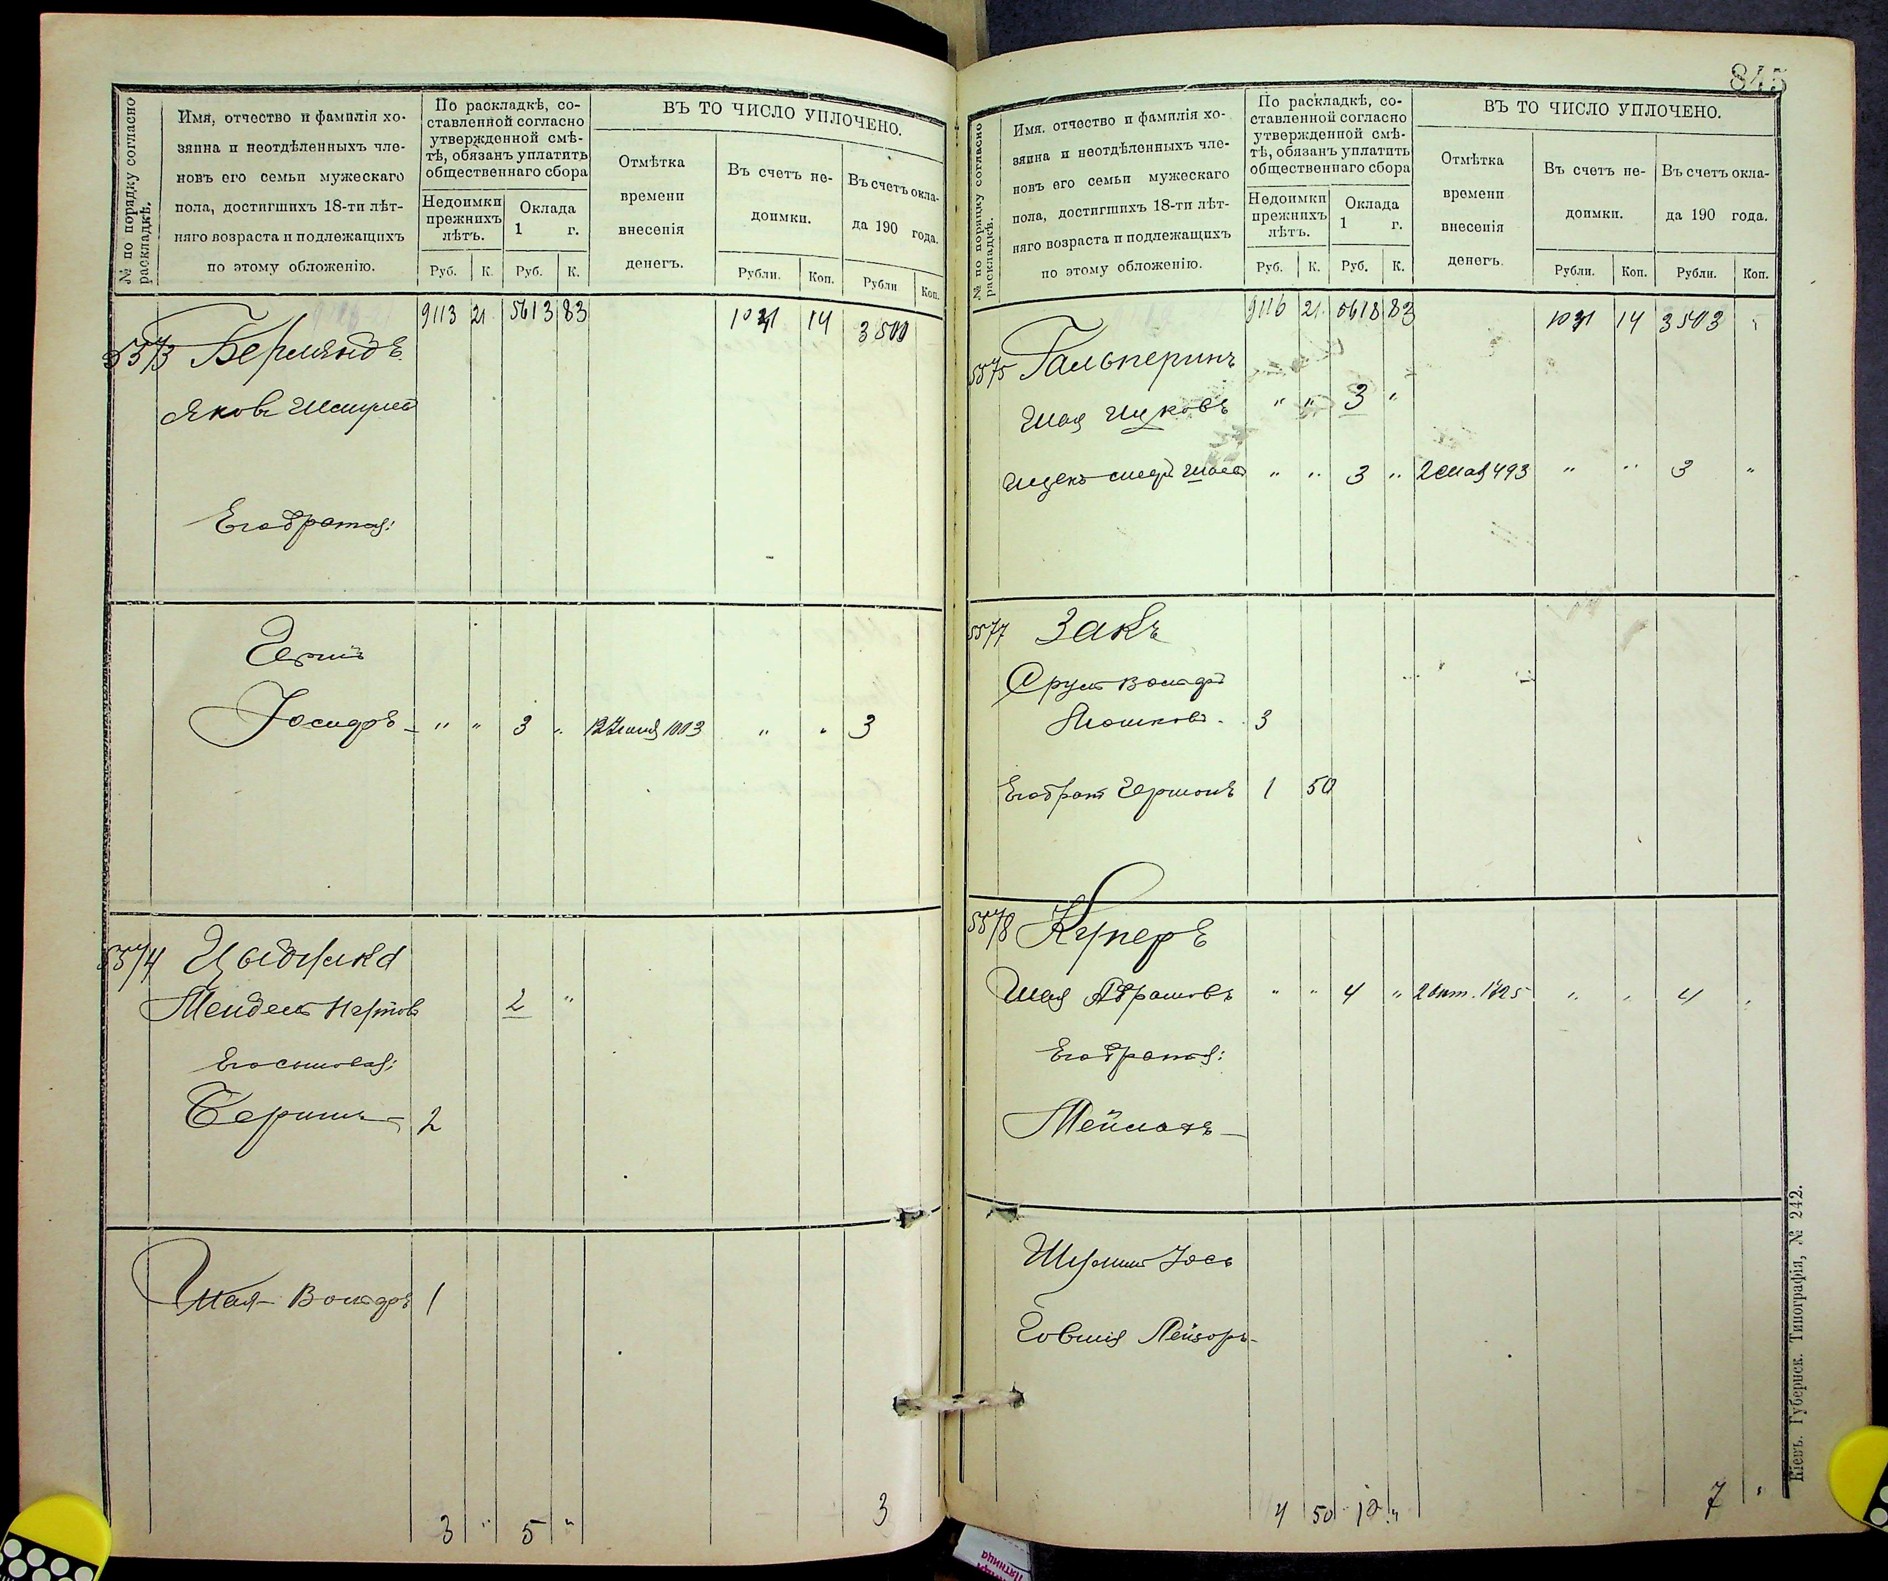 № по порядку согласно раскладкѣ.
Имя, отчество и фамилія хо-
зяина и неотдѣленныхъ чле-
новъ его семьи мужескаго
пола, достигшихъ 18-ти лѣт-
няго возраста и подлежащихъ
по этому обложенію.
По раскладкѣ, со-
ставленной согласно
утвержденной смѣ-
тѣ, обязанъ уплатить
общественнаго сбора
Недоимки
прежнихъ
лѣтъ.
Оклада
1 г.
Руб. К. Руб. К.
ВЪ ТО ЧИСЛО УПЛОЧЕНО.
Отмѣтка
времени
внесенія
денегъ.
Въ счетъ не-
доимки.
Въ счетъ окла-
да 190 года.
Рубли. Коп. Рубли Коп.
9113 21 5613 83 14
5573 Берляндъ
Яковъ
Его братья:
Герш
Іосифъ " " 3 " " " 3
5574 Цыбулка
Мендель 2 "
Его сыновья:
Бериш 2
Шая Вольфъ 1
3 " 5 " 3
845
№ по порядку согласно раскладкѣ.
Имя. отчество и фамилія хо-
зяина и неотдѣленныхъ чле-
новъ его семьи мужескаго
пола, достигшихъ 18-ти лѣт-
няго возраста и подлежащихъ
по этому обложенію.
По раскладкѣ, со-
ставленной согласно
утвержденной смѣ-
тѣ, обязанъ уплатить
общественнаго сбора
Недоимки
прежнихъ
лѣтъ.
Оклада
1 г.
Руб. К. Руб. К.
ВЪ ТО ЧИСЛО УПЛОЧЕНО.
Отмѣтка
времени
внесенія
денегъ.
Въ счетъ не-
доимки.
Въ счетъ окла-
да 190 года.
Рубли. Коп. Рубли. Коп.
9116 21 5618 83 14 3503
5575 Гальперинъ
Шая Ицковъ " " 3 "
" " 3 " " " 3 "
5577 Закъ
Сруль Вольфъ
3
Его братъ Гершонъ 1 50
5578 Куперъ
Шая Абрамовъ " " 4 " " " 4
Его братья:
Мейлахъ
Шулим Іось
Говшія Лейзоръ
4 50 10 " 7
Кіевъ. Губернск. Типографія, № 242.